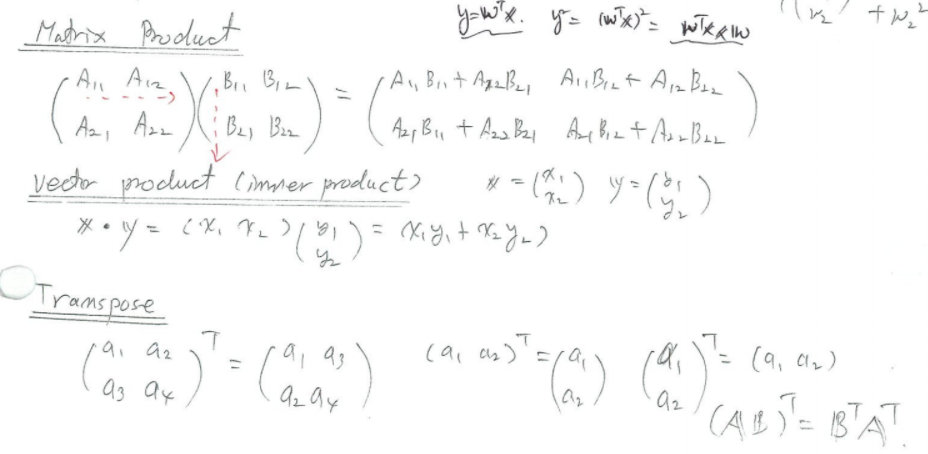 y=wᵀx. y²= (wᵀx)²= wᵀxxw
+w₂²
Matrix Product
(A₁₁ A₁₂; A₂₁ A₂₂)(B₁₁ B₁₂; B₂₁ B₂₂) = (A₁₁B₁₁ + A₁₂B₂₁ A₁₁B₁₂ + A₁₂B₂₂; A₂₁B₁₁ + A₂₂B₂₁ A₂₁B₁₂ + A₂₂B₂₂)
vector product (inner product) x = (x₁; x₂) y = (y₁; y₂)
x • y = (x₁ x₂)(y₁; y₂) = (x₁y₁ + x₂y₂)
Transpose
(a₁ a₂; a₃ a₄)ᵀ = (a₁ a₃; a₂ a₄) (a₁ a₂)ᵀ = (a₁; a₂) (a₁; a₂)ᵀ = (a₁ a₂)
(AB)ᵀ = BᵀAᵀ.